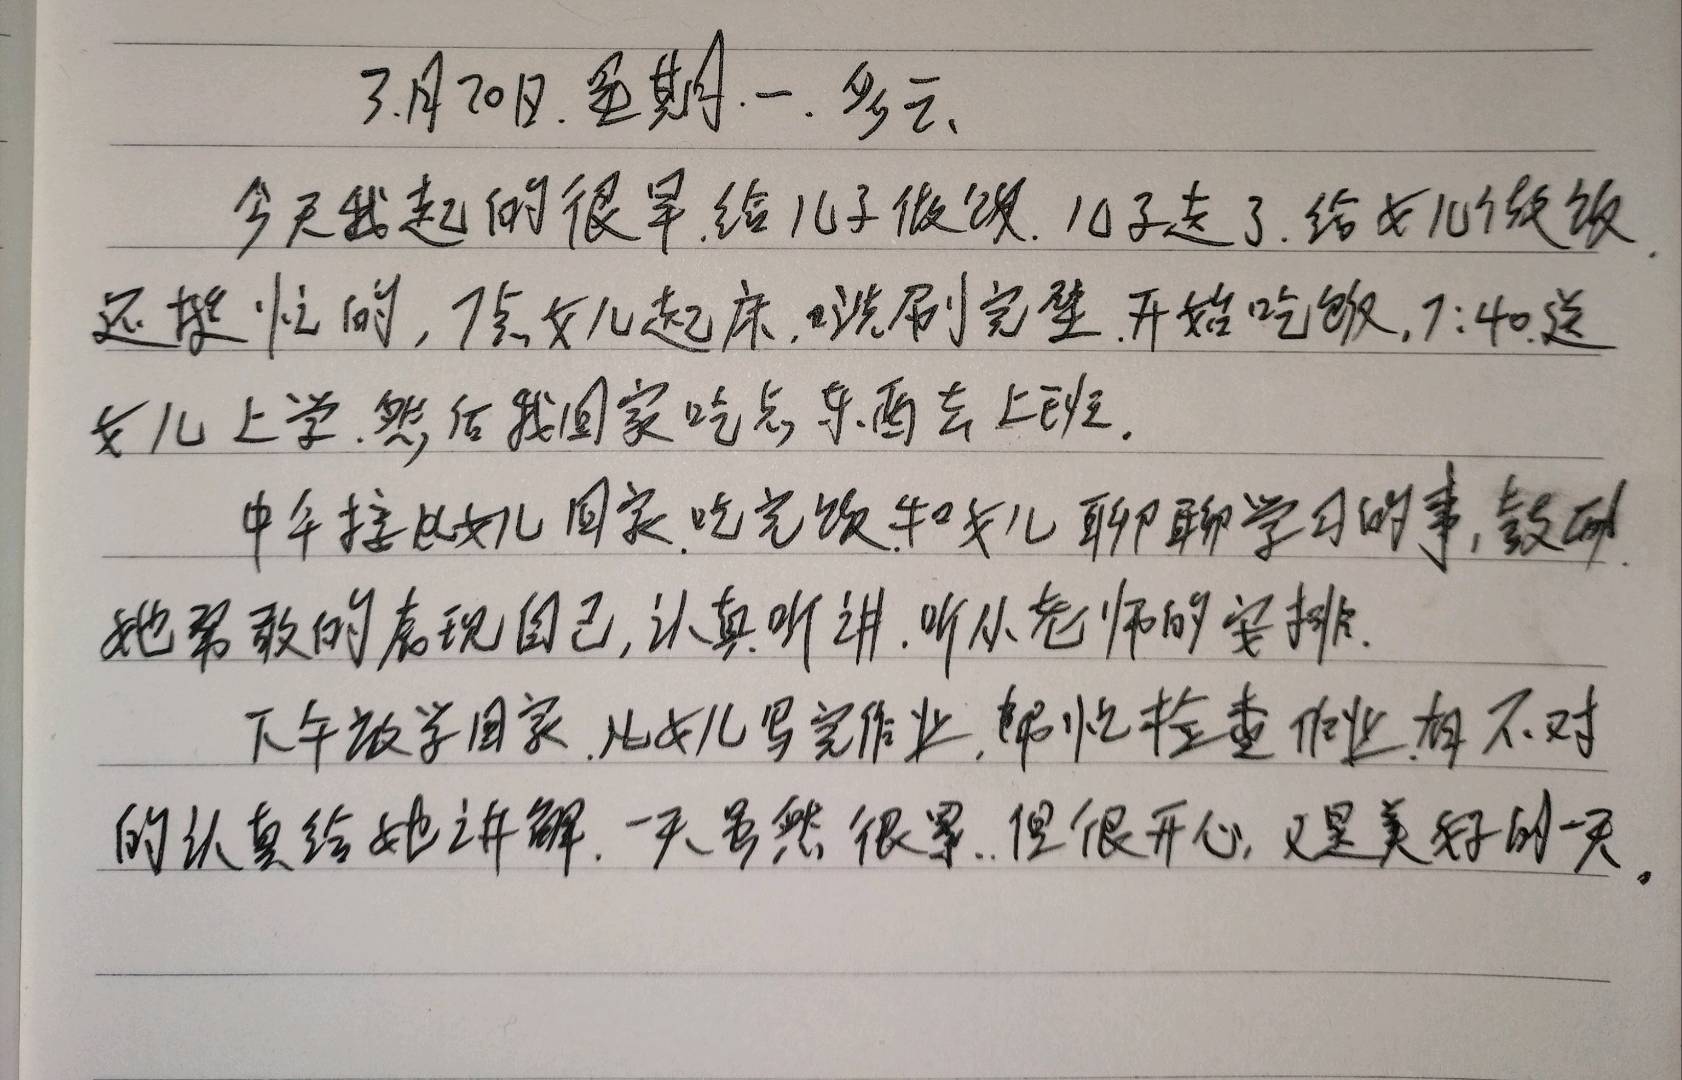 3.月20日.星期.一.多云、
今天我起的很早.给儿子做饭.儿子走了.给女儿做饭.
还挺忙的,7点女儿起床.洗刷完毕.开始吃饭,7:40.送
女儿上学.然后我回家吃点东西去上班.
中午接女儿回家.吃完饭.和女儿聊聊学习的事,鼓励.
她勇敢的表现自己,认真听讲.听从老师的安排.
下午放学回家.女儿写完作业.帮忙检查作业.有不对
的认真给她讲解.一天虽然很累..但很开心,又是美好的一天.